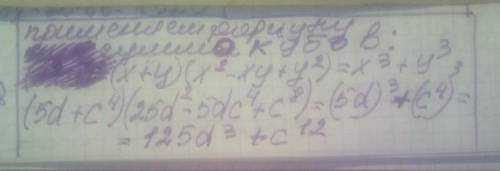 применяем формулу
суммы кубов:
(x+y)(x²-xy+y²)=x³+y³
(5d+c⁴)(25d²-5dc⁴+c⁸)=(5d)³+(c⁴)³=
=125d³+c¹²